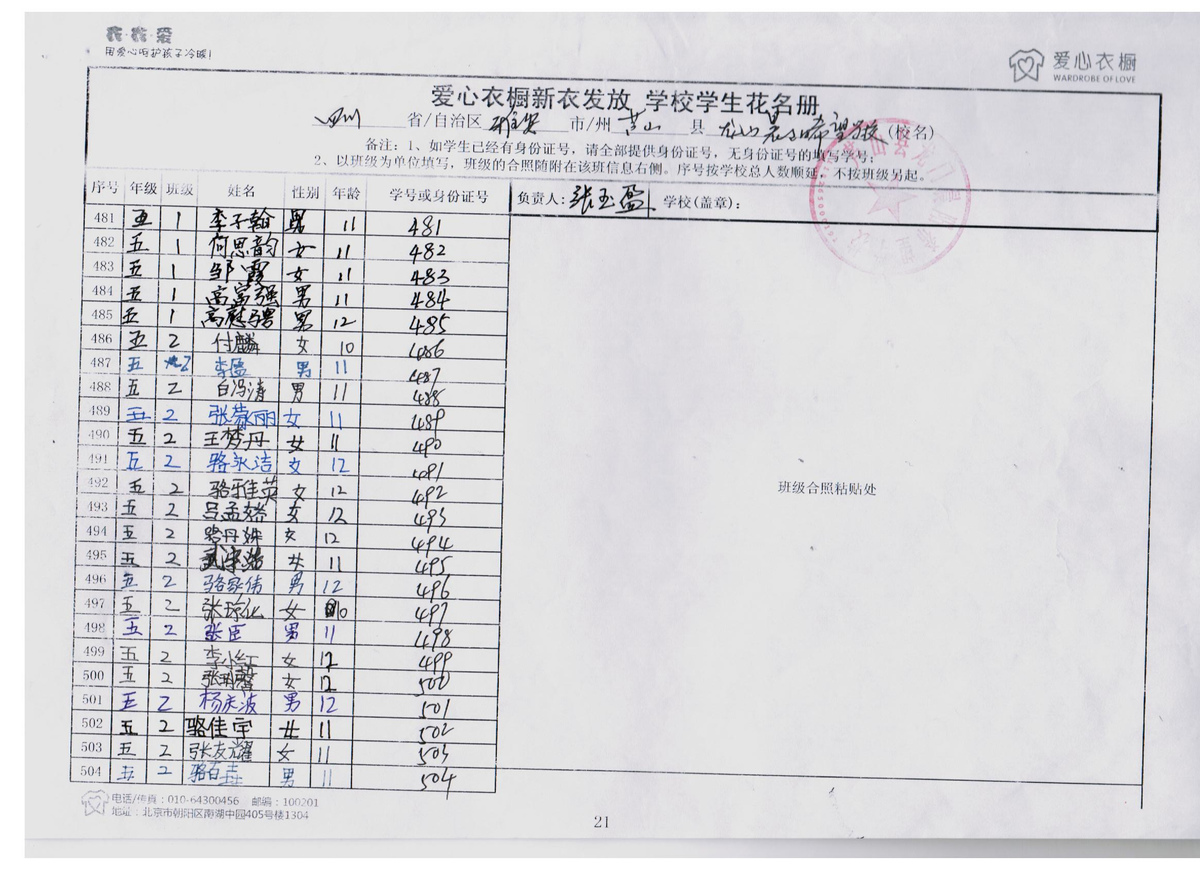 衣·衣·爱
用爱心呵护孩子冷暖!
爱心衣橱
WARDROBE OF LOVE
爱心衣橱新衣发放 学校学生花名册
四川 省/自治区 雅安 市/州 芦山 县 希望学校 (校名)
备注:1、如学生已经有身份证号,请全部提供身份证号,无身份证号的填写学号;
2、以班级为单位填写,班级的合照随附在该班信息右侧。序号按学校总人数顺延,不按班级另起。
序号 年级 班级 姓名 性别 年龄 学号或身份证号 负责人:张玉盈 学校(盖章):
481 五 1 李子翰 男 11 481
482 五 1 何思韵 女 11 482
483 五 1 邹霞 女 11 483
484 五 1 高富强 男 11 484
485 五 1 高 男 12 485
486 五 2 付麟 女 10 486
487 五 2 李 男 11 487
488 五 2 白冯涛 男 11 488
489 五 2 张 丽 女 11 489
490 五 2 王梦丹 女 11 490
491 五 2 骆永洁 女 12 491
492 五 2 骆雅英 女 12 492
493 五 2 吕孟 女 12 493
494 五 2 骆丹 女 12 494
495 五 2 女 11 495
496 五 2 骆家伟 男 12 496
497 五 2 张琼化 女 10 497
498 五 2 张臣 男 11 498
499 五 2 李小红 女 12 499
500 五 2 张明馨 女 12 500
501 五 2 杨庆波 男 12 501
502 五 2 骆佳宇 女 11 502
503 五 2 张友耀 女 11 503
504 五 2 骆百 男 11 504
班级合照粘贴处
电话/传真:010-64300456 邮编:100201
地址:北京市朝阳区南湖中园405号楼1304
21